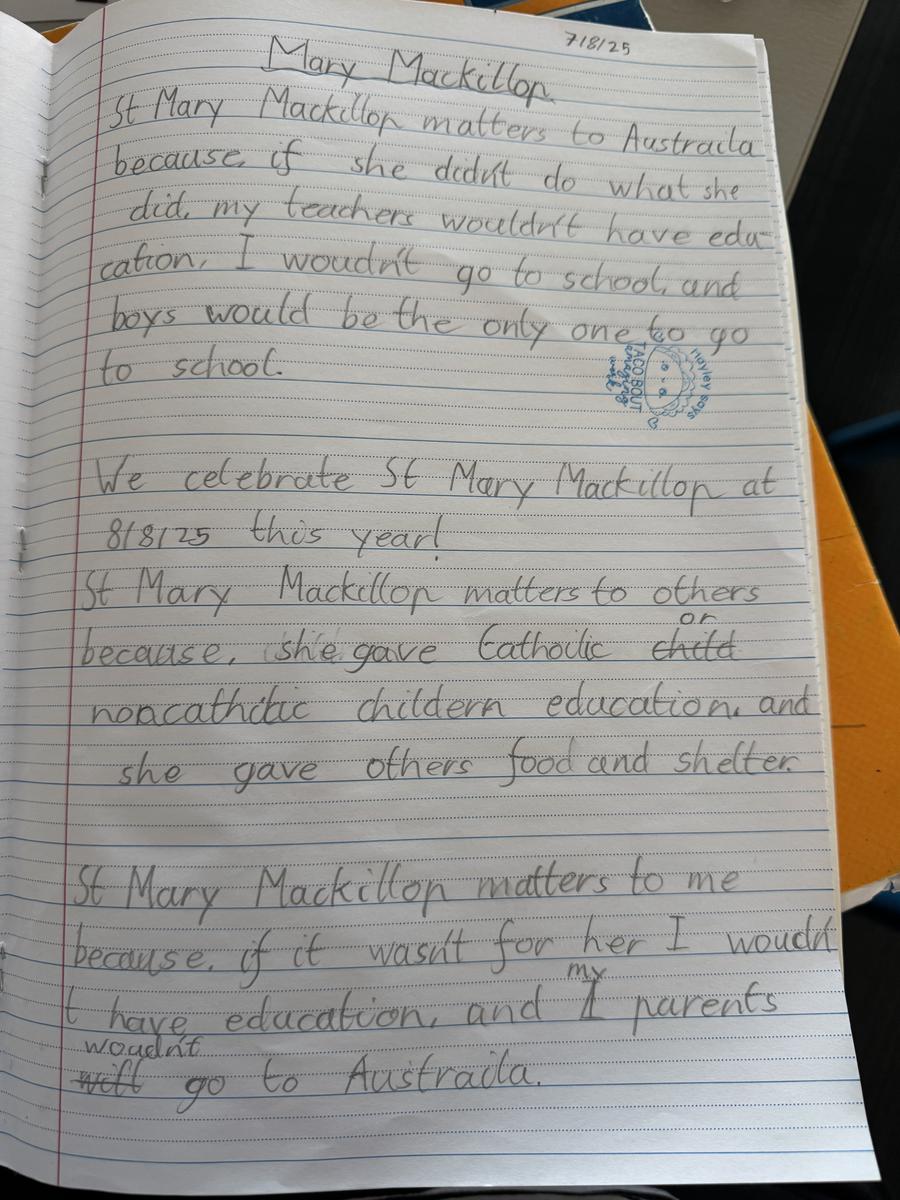 7/8/25
Mary Mackillop
St Mary Mackillop matters to Austraila
because, if she didn't do what she
did, my teachers wouldn't have edu-
cation, I woudn't go to school, and
boys would be the only one to go
to school.
Hayley says
TACO BOUT
amazing
work
We celebrate St Mary Mackillop at
8/8/25 this year!
St Mary Mackillop matters to others
because, she gave Catholic ~~child~~ or
noncatholic childern education, and
she gave others food and shelter.
St Mary Mackillop matters to me
because, if it wasn't for her I woudn'
t have education, and ~~I~~ my parents
~~will~~ woudn't go to Austraila.